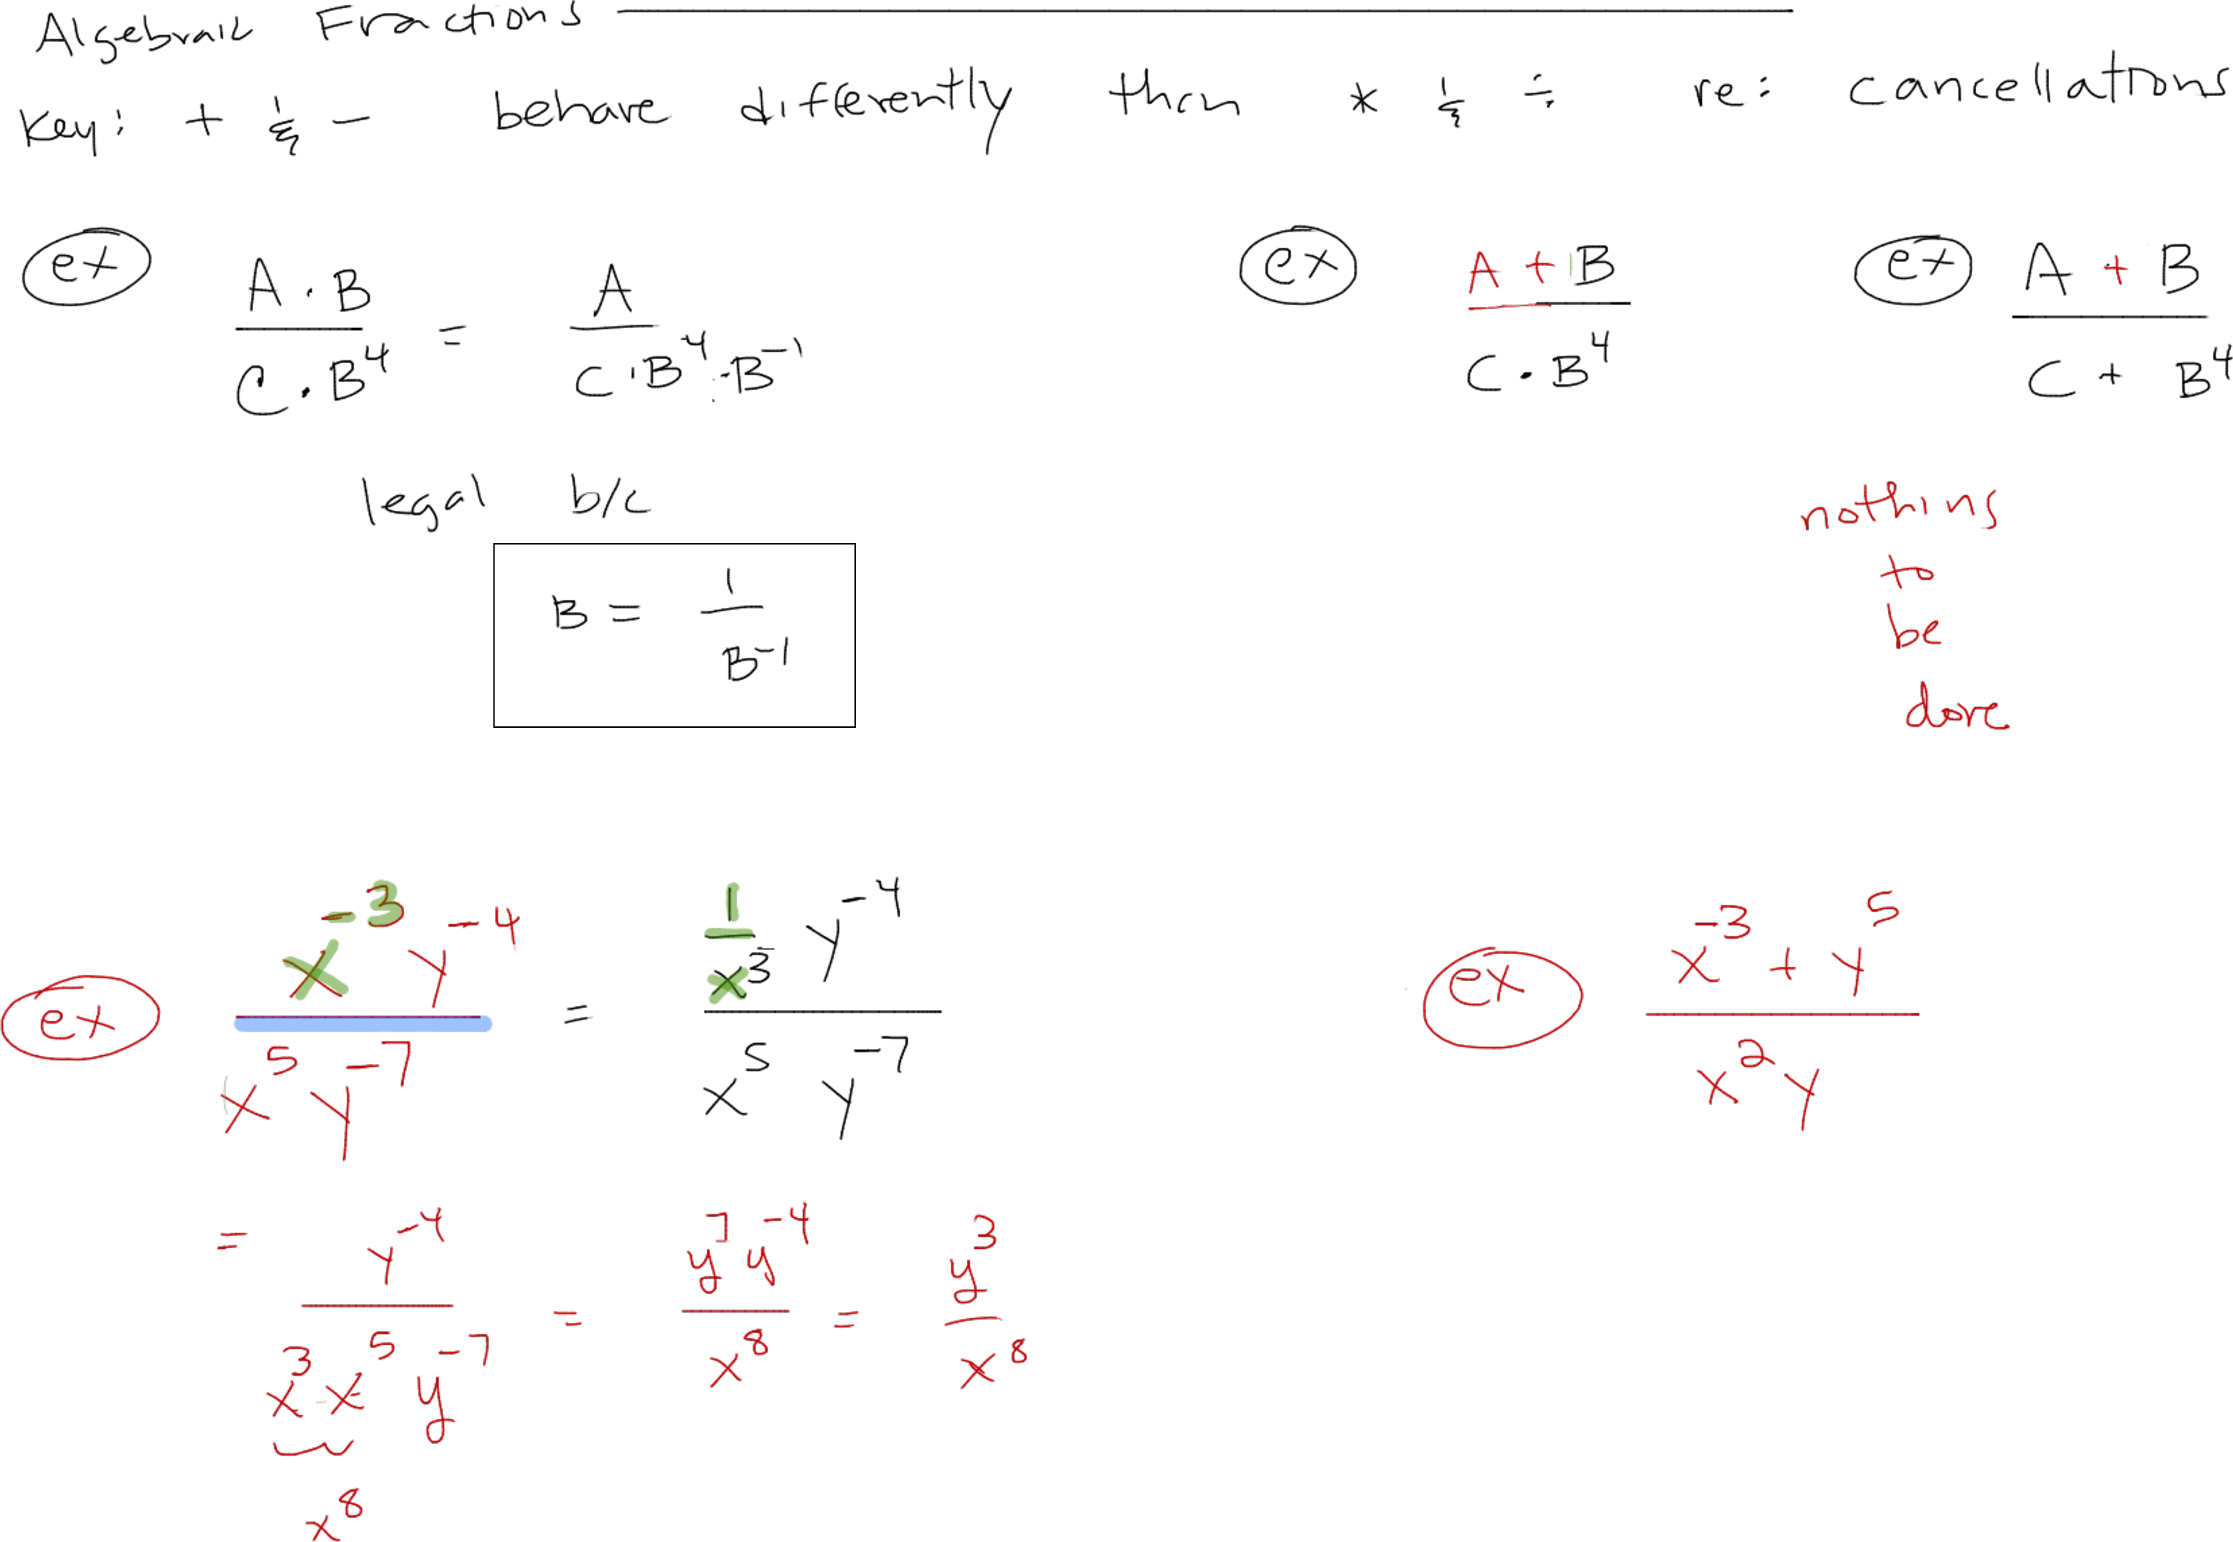 Algebraic Fractions
Key: + & - behave differently than * & ÷ re: cancellations
ex A · B / C · B^4 = A / C · B^4 · B^-1
ex A + B / C · B^4
ex A + B / C + B^4
legal b/c
B = 1 / B^-1
nothing
to
be
done
ex x^-3 y^-4 / x^5 y^-7 = 1/x^3 y^-4 / x^5 y^-7
ex x^-3 + y^5 / x^2 y
= y^-4 / x^3 · x^5 y^-7 = y^7 y^-4 / x^8 = y^3 / x^8
x^8